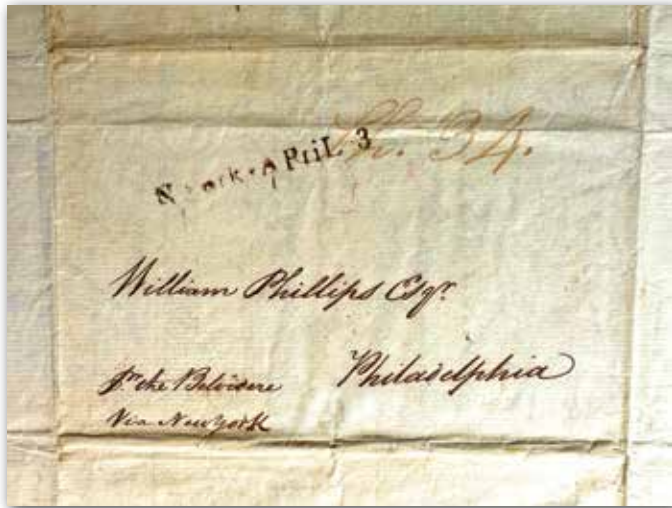 Sh. 34.
N york • APriL 3
William Phillips Esqr.
Philadelphia
pr the Belvidere
Via New York